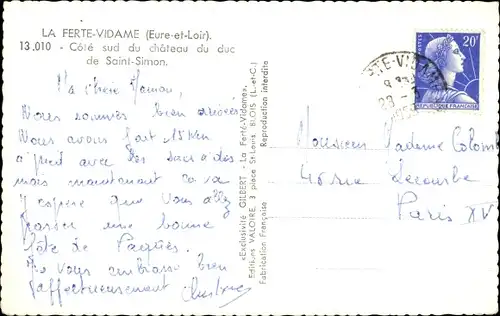 LA FERTE-VIDAME (Eure-et-Loir).
13.010 - Côté sud du château du duc
de Saint-Simon.
Ma chère Maman,
Nous sommes bien arrivés
Nous avons fait 15 Km
à pied avec des sacs à dos
mais maintenant ça va
J'espère que vous allez
passer une bonne
fête de Pâques.
Je vous embrasse bien
affectueusement
«Exclusivité GILBERT - La Ferté-Vidame».
Editions VALOIRE, 3 place St-Louis, BLOIS (L.-et-C.)
Fabrication Française
Reproduction interdite
20F
POSTES
REPUBLIQUE FRANÇAISE
Monsieur Madame Colomb
rue Lecourbe
Paris XV